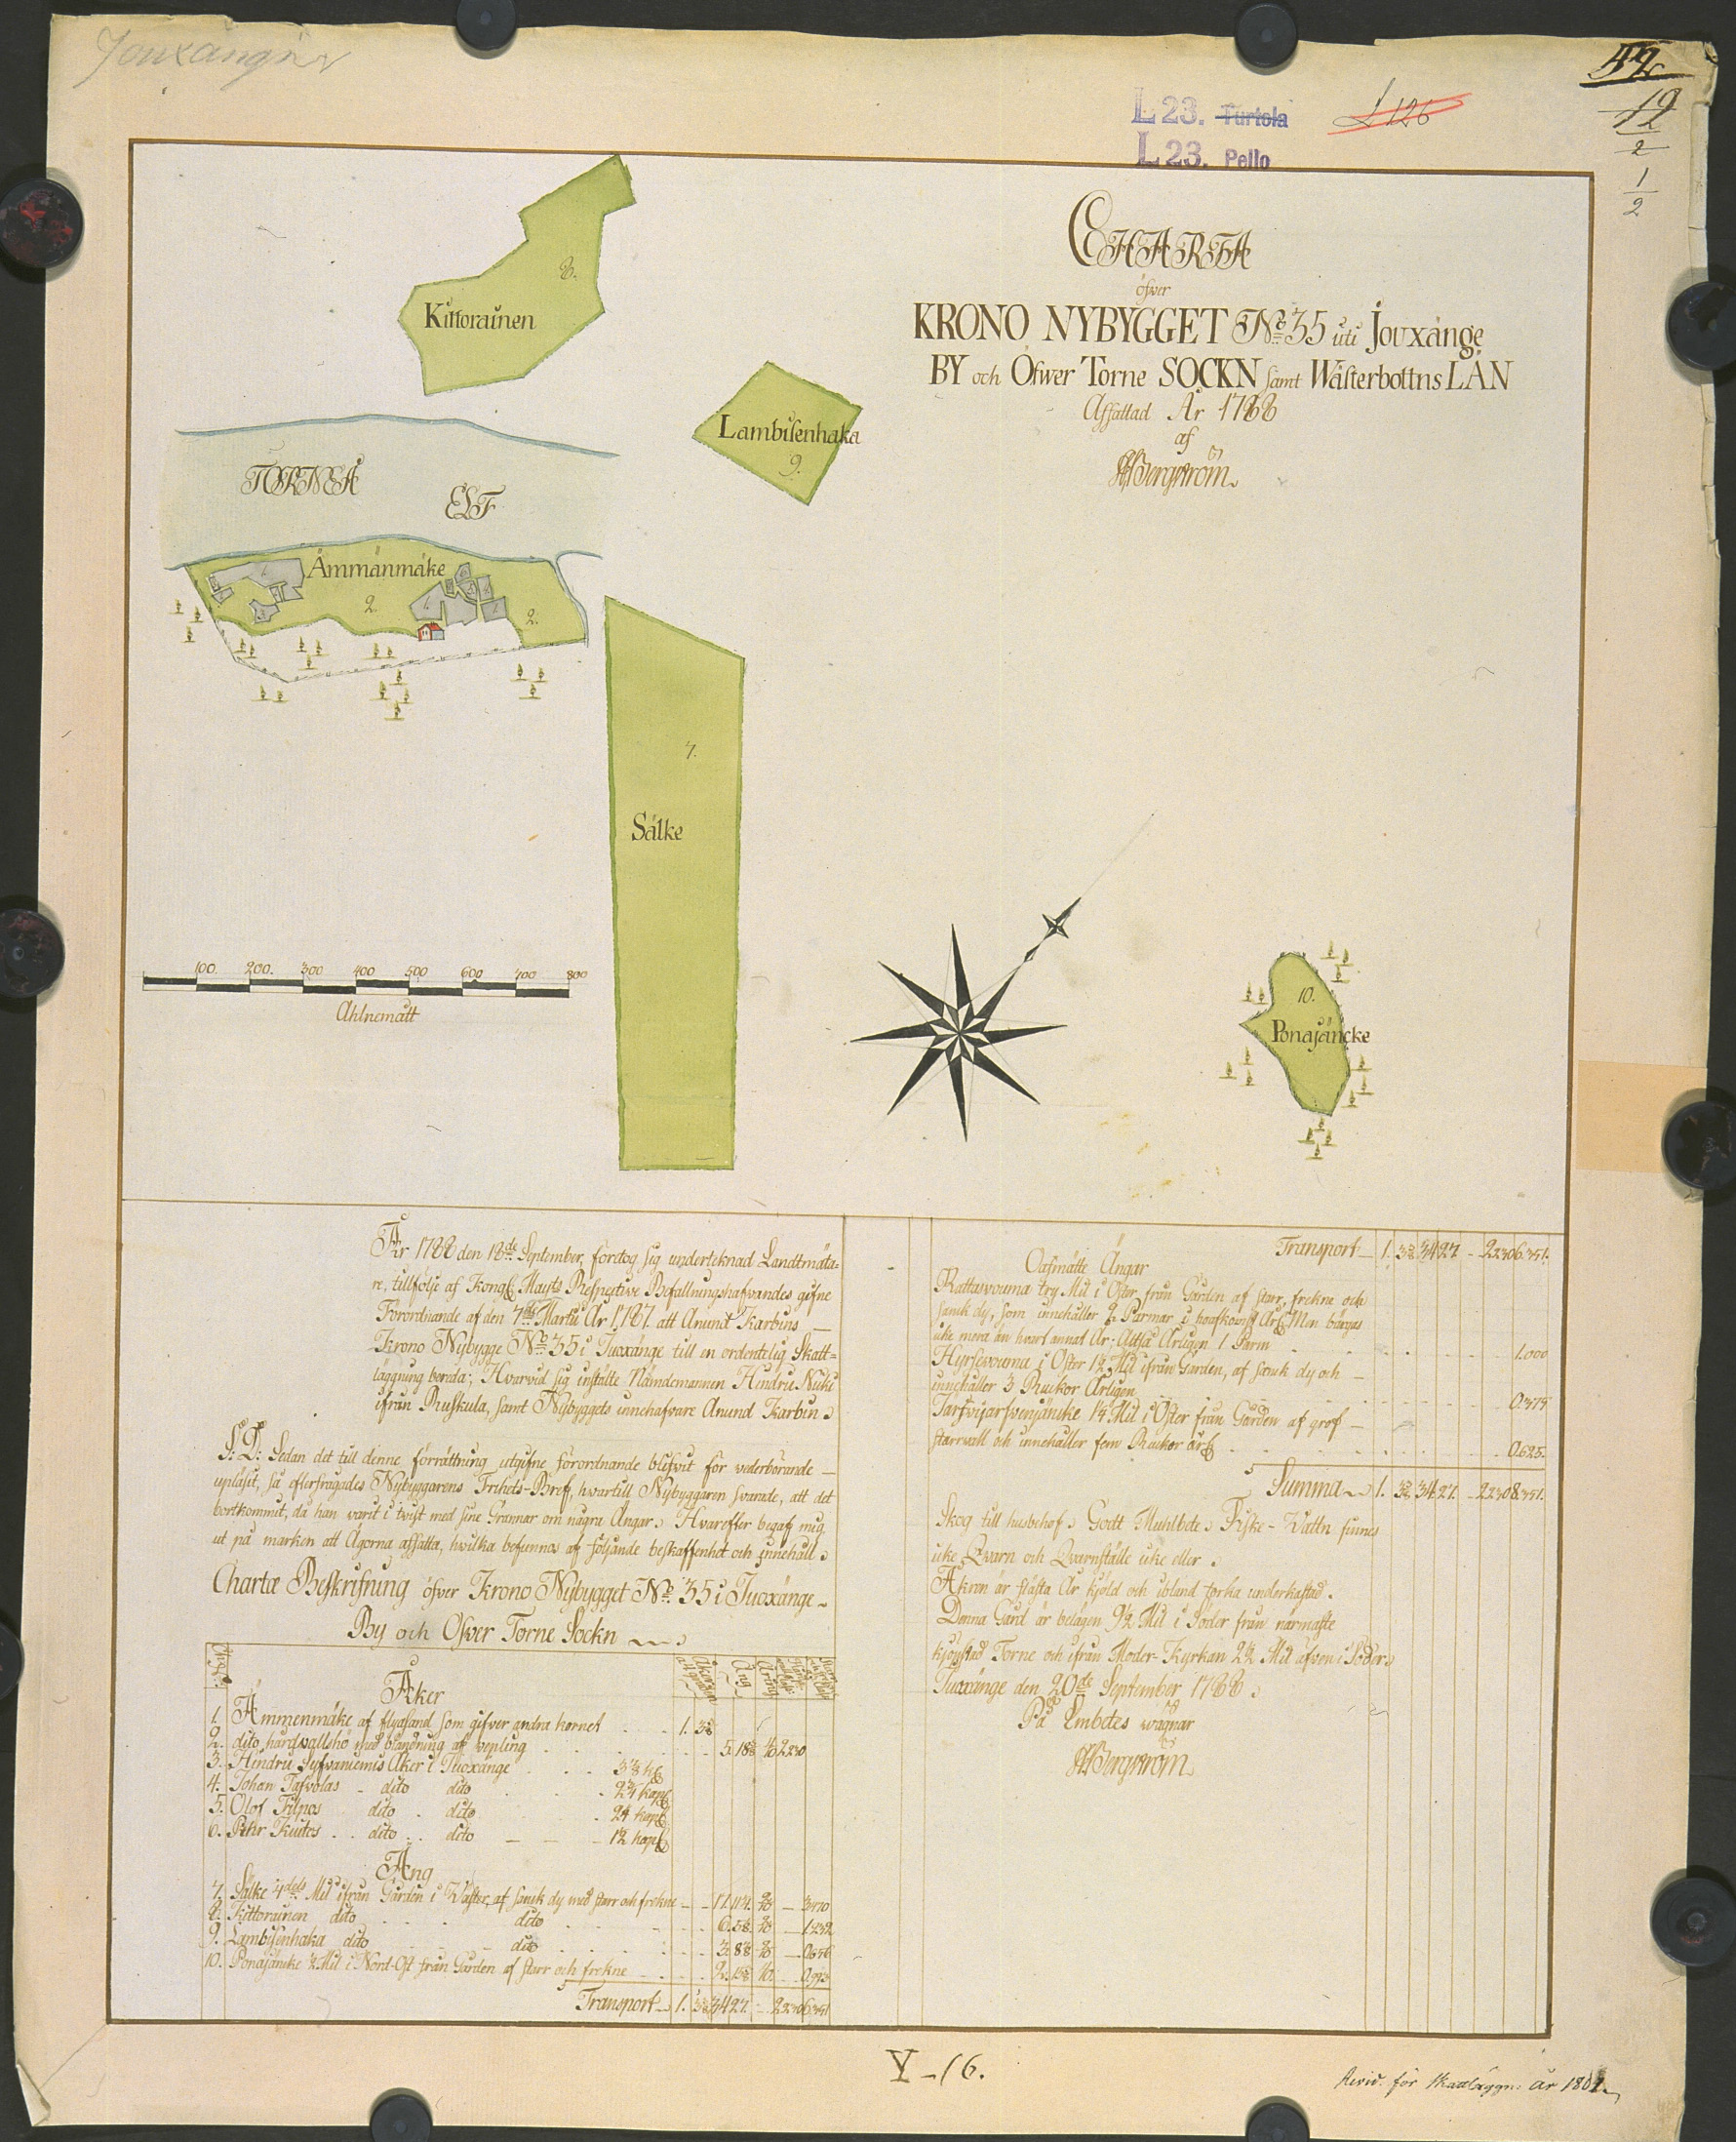 Jouxänge
52
12
2
1
2
L 23. Turtola
L 126
L 23. Pello
CHARTA
öfver
KRONO NYBYGGET No 35 uti Jouxänge
BY och Öfwer Torne SOCKN samt Wästerbottns LÄN
Affattad År 1788
af
Bergström
8.
Kittorainen
Lambisenhaka
9.
TORNEÅ
ELF
Ämmänmäke
2.
2.
7.
Sälke
100. 200. 300 400 500 600 700 800
Ahlnemått
10.
Ponajäncke
År 1788 den 18de September, företog sig underteknad Landtmäta=
re, tillfölje af Kongl Mayts Respective Befallningshafvandes gifne
Förordnande af den 7de Martii År 1787. att Anund Karbins
Krono Nybygge No 35 i Juoxänge till en ordentelig Skatt=
läggning bereda; Hvarvid sig instälte Nämdemannen Hindric Niuki
ifrån Ruskula, samt Nybyggets innehafvare Anund Karbin
S: D: Sedan det till denne förrättning utgifne förordnande blifwit för vederbörande
upläsit, så efterfrågades Nybyggarens Frihets-Bref, hwartill Nybyggaren svarade, att det
bortkommit, då han varit i twist med sine Grannar om några Ängar. Hvarefter begaf mig
ut på marken att Ägorna affatta, hwilka befunnos af följande beskaffenhet och innehåll
Chartæ Beskrifning öfver Krono Nybygget No 35 i Juoxänge
By och Öfver Torne Sockn
Åker
1. Ämmenmäke af flygsand som gifver andra kornet 1. 3 2/8
2. dito hårdwallshö med blandning af vepling 5. 18 2230
3. Hindric Sylvaniemis Åker i Juoxänge
4. Johan Tafvolas dito dito
5. Olof Filpos dito dito
6. Pehr Kuitos dito dito
Äng
7. Sälke 4dels Mil ifrån Gården i Wäster af sank dy med starr och frekne
8. Kittorainen dito dito
9. Lambisenhaka dito dito
10. Ponajäncke Mil i Nord-Ost från Gården af starr och frekne
Transport 1. 34 27. 2230 6.351
Transport 1. 34 27 2230 6.351.
Oafmätte Ängar
Rattasvouma try Mil i Öster från Gården af starr, frekne och
sank dy, som innehåller 2 Parmar i höafkomst Årl. Men bärgas
icke mera än hvart annat År; Alltså Årligen 1 Parm 1.000
Hyrsevouma i Öster 1 1/4 Mil ifrån Gården, af sank dy och
innehåller 3 Ruckor Årligen 0.375
Jarfvijarfvenjäncke 1 1/4 Mil i Öster från Gården af grof
starrvall och innehåller fem Ruckor årl. 0.625.
Summa 1. 34 27. 2230 8.351.
Skog till husbehof. Godt Muhlbete. Fiske-Wattn finnes
icke Qvarn och Qvarnställe icke eller.
Åkren är flästa År kjöld och ibland torka underkastad.
Denna Gård är belägen 9 1/2 Mil i Söder från närmaste
kjöpstad Torne och ifrån Moder-Kyrkan 2 1/2 Mil äfven i Söder
Juoxänge den 20de September 1788
På Embetes wägnar
Bergström
V-16.
Revid. för Skattläggn: år 180